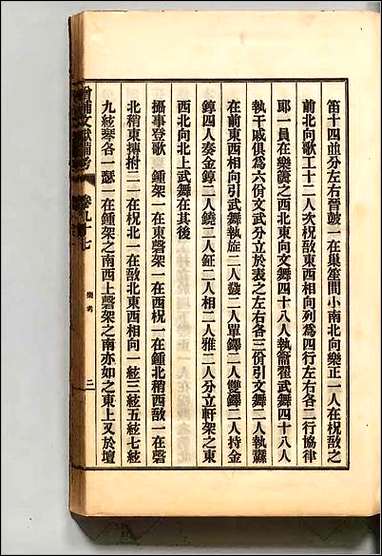 笛十四並分左右晉鼓一在巢笙間小南北向樂正一人在柷敔之
前北向歌工十二人次柷敔東西相向列爲四行左右各二行協律
郞一員在樂簴之西北東向文舞四十八人執籥翟武舞四十八人
執干戚俱爲六佾文武分立於表之左右各三佾引文舞二人執纛
在前東西相向引武舞執旌二人鼗二人單鐸二人雙鐸二人持金
錞四人奏金錞二人鐃二人鉦二人相二人雅二人分立軒架之東
西北向北上武舞在其後
攝事登歌 鍾架一在東磬架一在西柷一在鍾北稍西敔一在磬
北稍東摶拊二一在柷北一在敔北東西相向一絃三絃五絃七絃
九絃琴各一瑟一在鍾架之南西上磬架之南亦如之東上又於壇
增補文獻備考 卷九十七 樂考 二